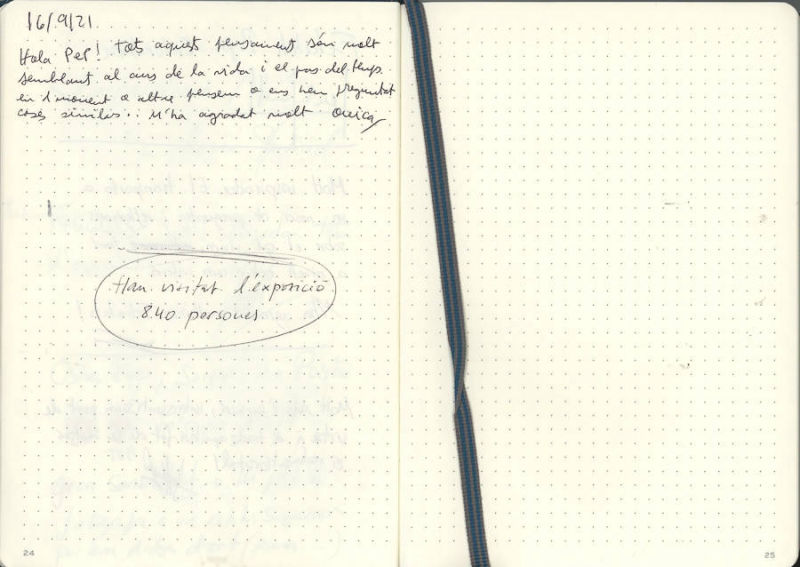 16/9/21.
Hola Pep! tots aquest pensament són molt
semblant al curs de la vida i el pas del temps.
en l'moment o altre pensem o ens hem preguntat
coses similars.. M'ha agradat molt
Han visitat l'exposició
840 persones
24
25